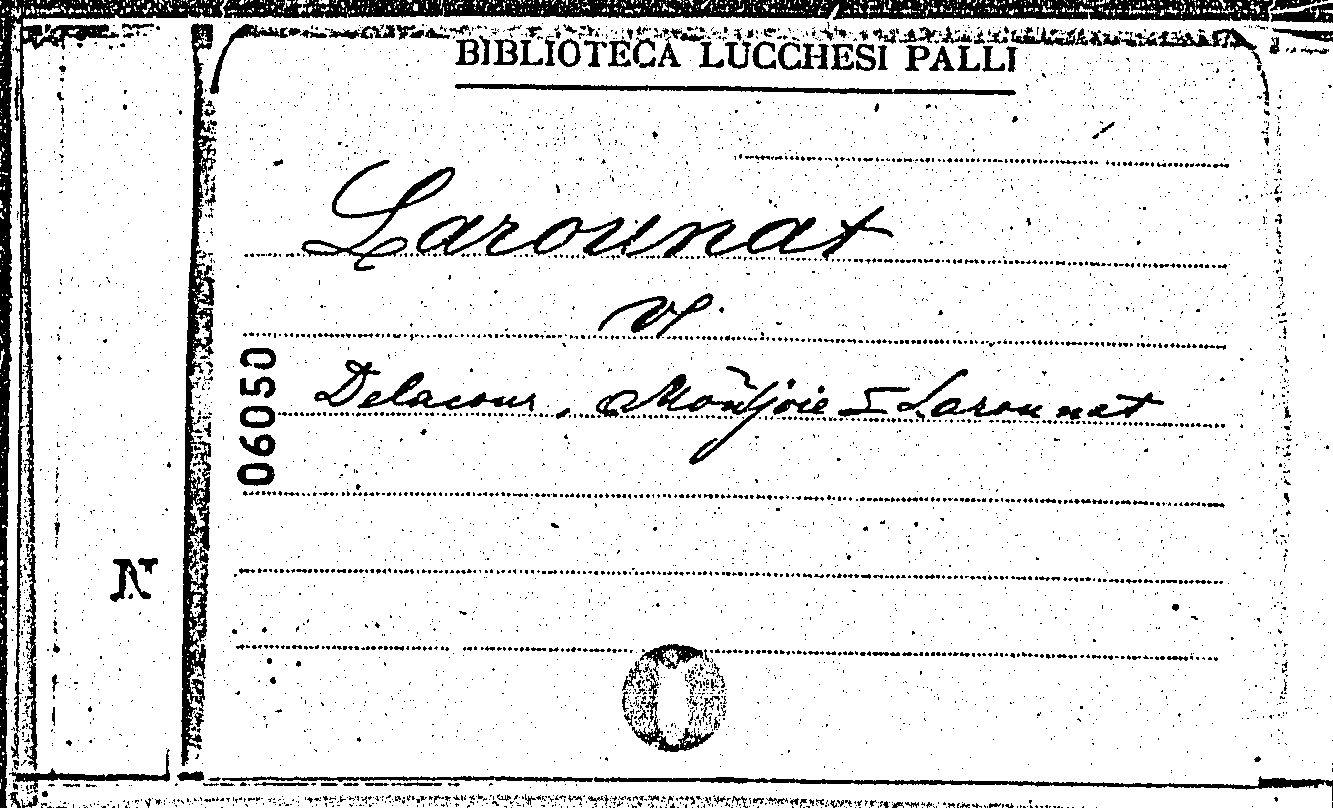 BIBLIOTECA LUCCHESI PALLI
Larounat
V.
Delacour, Monjoie e Larounat
06050
N